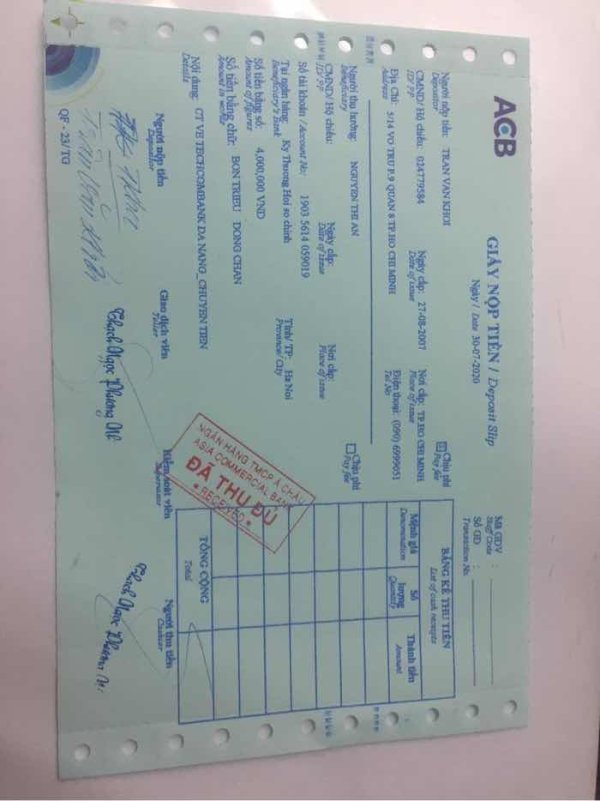 ACB
GIẤY NỘP TIỀN / Deposit Slip
Ngày / Date 30-07-2020
Mã GDV :
Staff Code
Số GD :
Transaction No.
Người nộp tiền: TRAN VAN KHOI
Depositor
Chịu phí
Pay fee
CMND/ Hộ chiếu: 024779584 Ngày cấp: 27-08-2007 Nơi cấp: TP.HO CHI MINH
ID/ PP Date of issue Place of issue
Địa Chỉ: 5/14 VO TRU P.9 QUAN 8 TP.HO CHI MINH Điện thoại: (090) 6999051
Address Tel No
Người thụ hưởng: NGUYEN THI AN
Beneficiary
Chịu phí
Pay fee
CMND/ Hộ chiếu: Ngày cấp: Nơi cấp:
ID/ PP Date of issue Place of issue
Số tài khoản / Account No: 1903 5614 059019
Tại ngân hàng: Ky Thuong Hoi so chinh Tỉnh/ TP: Ha Noi
Beneficiary's Bank Province/ City
Số tiền bằng số: 4,000,000 VND
Amount of figures
Số tiền bằng chữ: BON TRIEU DONG CHAN
Amount in words
Nội dung: CT VE TECHCOMBANK DA NANG_CHUYEN TIEN
Details
BẢNG KÊ THU TIỀN
List of cash receipts
Mệnh giá Số lượng Thành tiền
Denomination Quantity Amount
TỔNG CỘNG
Total
NGÂN HÀNG TMCP Á CHÂU
ASIA COMMERCIAL BANK
ĐÃ THU ĐỦ
* RECEIVED *
Người nộp tiền Giao dịch viên Kiểm soát viên Người thu tiền
Depositor Teller Supervisor Cashier
Trần Văn Khởi
Thạch Ngọc Phương
Thạch Ngọc Phương
QF - 23/TG